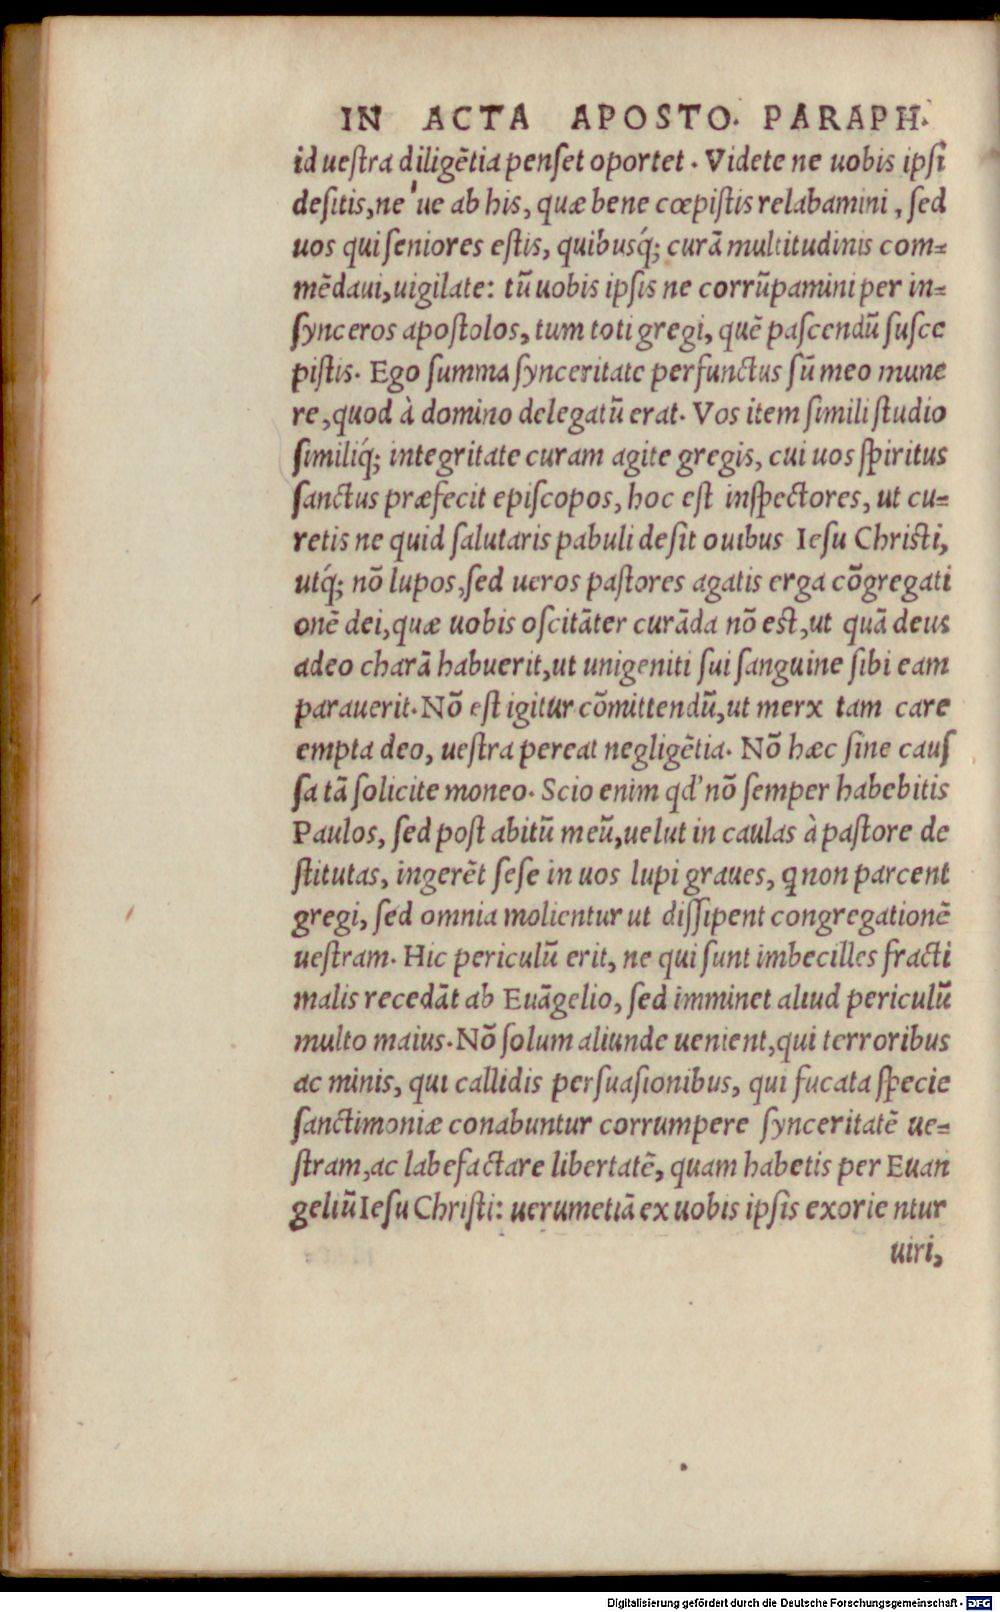 IN ACTA APOSTO. PARAPH.
id ueſtra diligẽtia penſet oportet. Videte ne uobis ipſi
deſitis, ne ue ab his, quæ bene cœpiſtis relabamini, ſed
uos qui ſeniores eſtis, quibusq́; curã multitudinis com-
mẽdaui, uigilate: tũ uobis ipſis ne corrũpamini per in-
ſynceros apoſtolos, tum toti gregi, quẽ paſcendũ ſuſce
piſtis. Ego ſumma ſynceritate perfunctus ſũ meo mune
re, quod à domino delegatũ erat. Vos item ſimili ſtudio
ſimiliq́; integritate curam agite gregis, cui uos ſpiritus
ſanctus præfecit epiſcopos, hoc eſt inſpectores, ut cu-
retis ne quid ſalutaris pabuli deſit ouibus Ieſu Chriſti,
utq́; nõ lupos, ſed ueros paſtores agatis erga cõgregati
onẽ dei, quæ uobis oſcitãter curãda nõ eſt, ut quã deus
adeo charã habuerit, ut unigeniti ſui ſanguine ſibi eam
parauerit. Nõ eſt igitur cõmittendũ, ut merx tam care
empta deo, ueſtra pereat negligẽtia. Nõ hæc ſine cauſ
ſa tã ſolicite moneo. Scio enim qd' nõ ſemper habebitis
Paulos, ſed poſt abitũ meũ, uelut in caulas à paſtore de
ſtitutas, ingerẽt ſeſe in uos lupi graues, ꝗ non parcent
gregi, ſed omnia molientur ut diſſipent congregationẽ
ueſtram. Hic periculũ erit, ne qui ſunt imbecilles fracti
malis recedãt ab Euãgelio, ſed imminet aliud periculũ
multo maius. Nõ ſolum aliunde uenient, qui terroribus
ac minis, qui callidis perſuaſionibus, qui fucata ſpecie
ſanctimoniæ conabuntur corrumpere ſynceritatẽ ue-
ſtram, ac labefactare libertatẽ, quam habetis per Euan
geliũ Ieſu Chriſti: uerumetiã ex uobis ipſis exorientur
uiri,
Digitalisierung gefördert durch die Deutsche Forschungsgemeinschaft - DFG